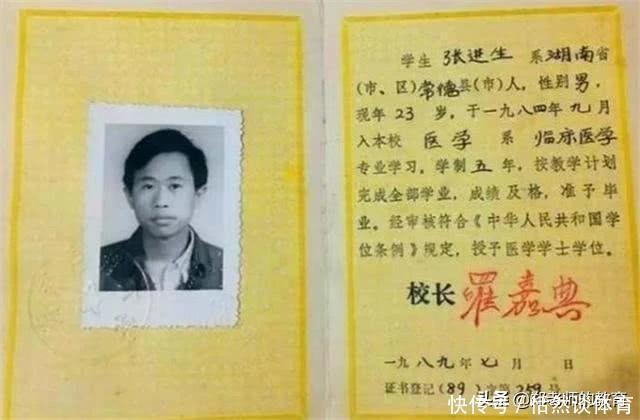 学生 张进生 系湖南省
(市、区)常德县(市)人，性别男，
现年23岁，于一九八四年九月
入本校 医学 系 临床医学
专业学习，学制五年，按教学计划
完成全部学业，成绩及格，准予毕
业。经审核符合《中华人民共和国学
位条例》规定，授予医学学士学位。
校长 罗嘉典
一九八九年七月 日
证书登记(89)字第259号
头条
师的教育
快传号/恬然谈体育